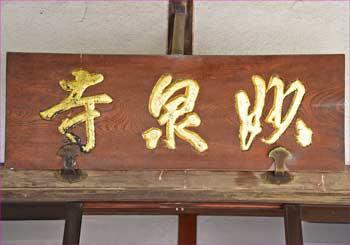 妙泉寺